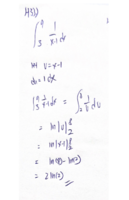 ∫₃⁹ 1/(x-1) dx
let u = x-1
du = 1 dx
∫₃⁹ 1/(x-1) dx = ∫₂⁸ 1/u du
= ln|u| ⁸₂
= ln|x-1| ⁸₂
= ln(8) - ln(2)
= 2 ln(2)